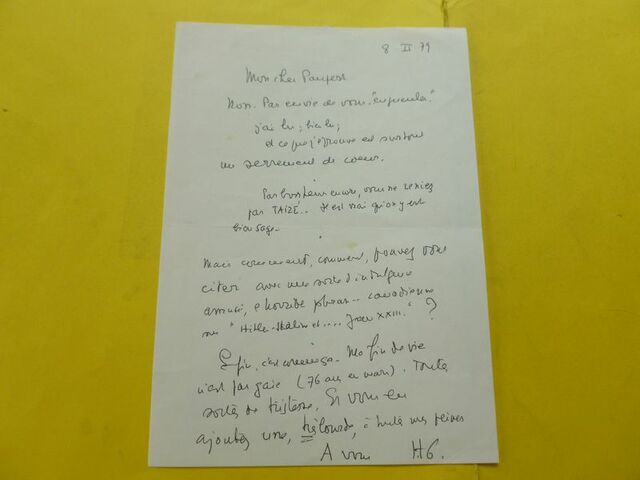 8 II 79
Mon cher Paupert
Non. Pas envie de vous "engueuler."
j'ai lu; bien lu;
et ce que j'éprouve est surtout
un serrement de coeur.
Par bonheur encore, vous ne reniez
pas TAIZÉ.. Il est vrai qu'on y est
bien sage.
Mais comment, comment, pouvez vous
citer avec une sorte d'indulgence
amusée, l'horrible phrase.. canadienne
sur "Hitler-Staline et.... Jean XXIII." ?
Enfin, c'est comme ça. Ma fin de vie
n'est pas gaie (76 ans en mars). Toutes
sortes de tristesse. Et vous en
ajoutez une, très lourde, à toutes mes peines
A vous H.G.